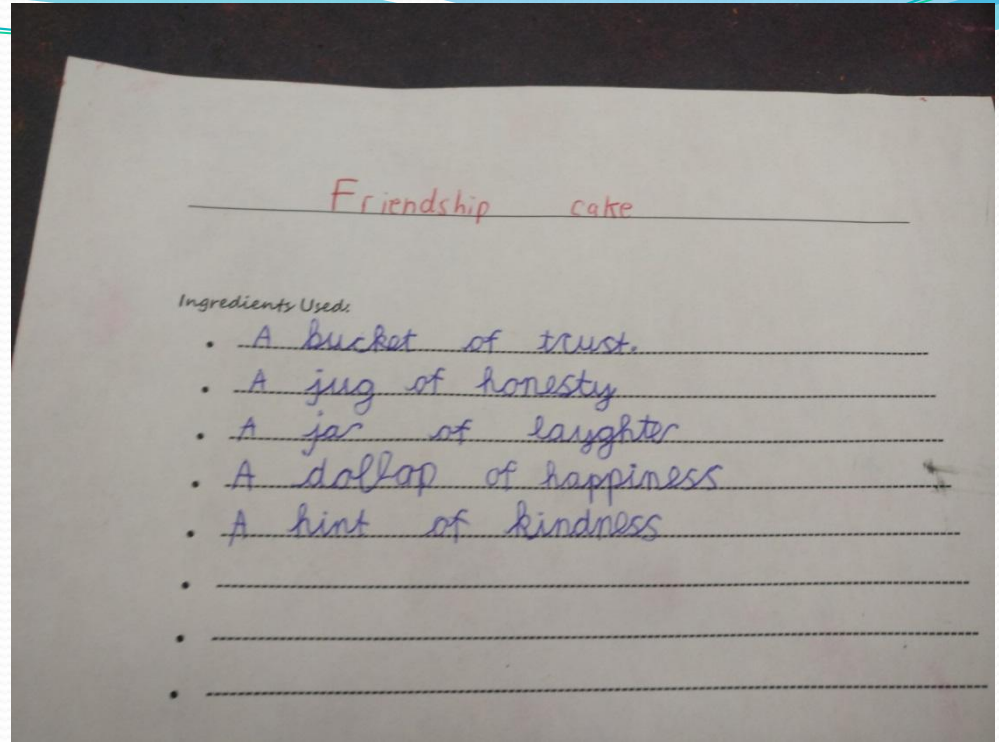 Friendship cake
Ingredients Used:
• A bucket of trust.
• A jug of honesty
• A jar of laughter
• A dollap of happiness
• A hint of kindness